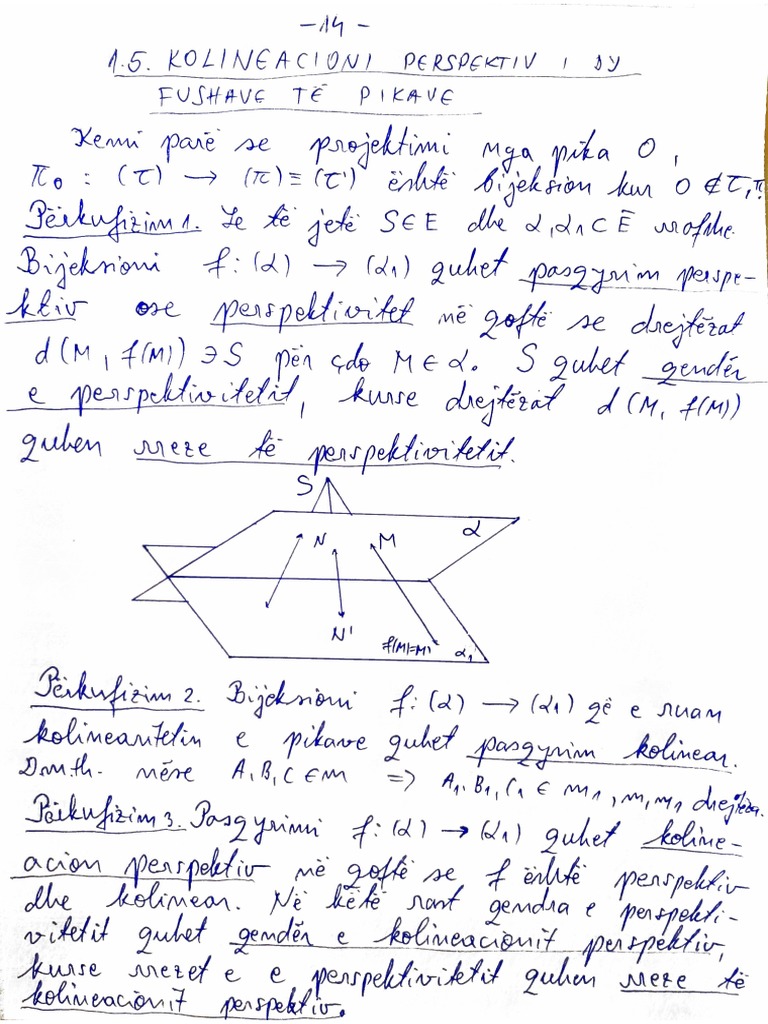 -14-
1.5. KOLINEACIONI PERSPEKTIV I DY
FUSHAVE TË PIKAVE
Kemi parë se projektimi nga pika O,
π₀ : (τ) → (π) ≡ (τ') është bijeksion kur O ∉ τ, π.
Përkufizim 1. Le të jetë S∈E dhe α, α₁ ⊂ Ē rrafshe.
Bijeksioni f: (α) → (α₁) quhet pasqyrim perspe-
ktiv ose perspektivitet në qoftë se drejtëzat
d(M, f(M)) ∋ S për çdo M ∈ α. S quhet qendër
e perspektivitetit, kurse drejtëzat d(M, f(M))
quhen rreze të perspektivitetit.
S
α
N M
N'
f(M)=M' α₁
Përkufizim 2. Bijeksioni f: (α) → (α₁) që e ruan
kolinearitetin e pikave quhet pasqyrim kolinear.
D.m.th. nëse A, B, C ∈ m => A₁, B₁, C₁ ∈ m₁, m, m₁ drejtëza.
Përkufizim 3. Pasqyrimi f: (α) → (α₁) quhet koline-
acion perspektiv në qoftë se f është perspektiv
dhe kolinear. Në këtë rast qendra e perspekti-
vitetit quhet qendër e kolineacionit perspektiv,
kurse rrezet e e perspektivitetit quhen rreze të
kolineacionit perspektiv.